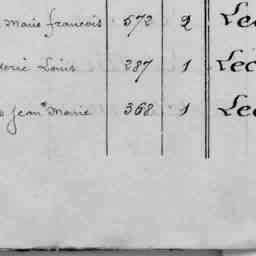 Marie francois 572 2 Lec
deric Louis 287 1 Lec
Jean Marie 368 1 Lec